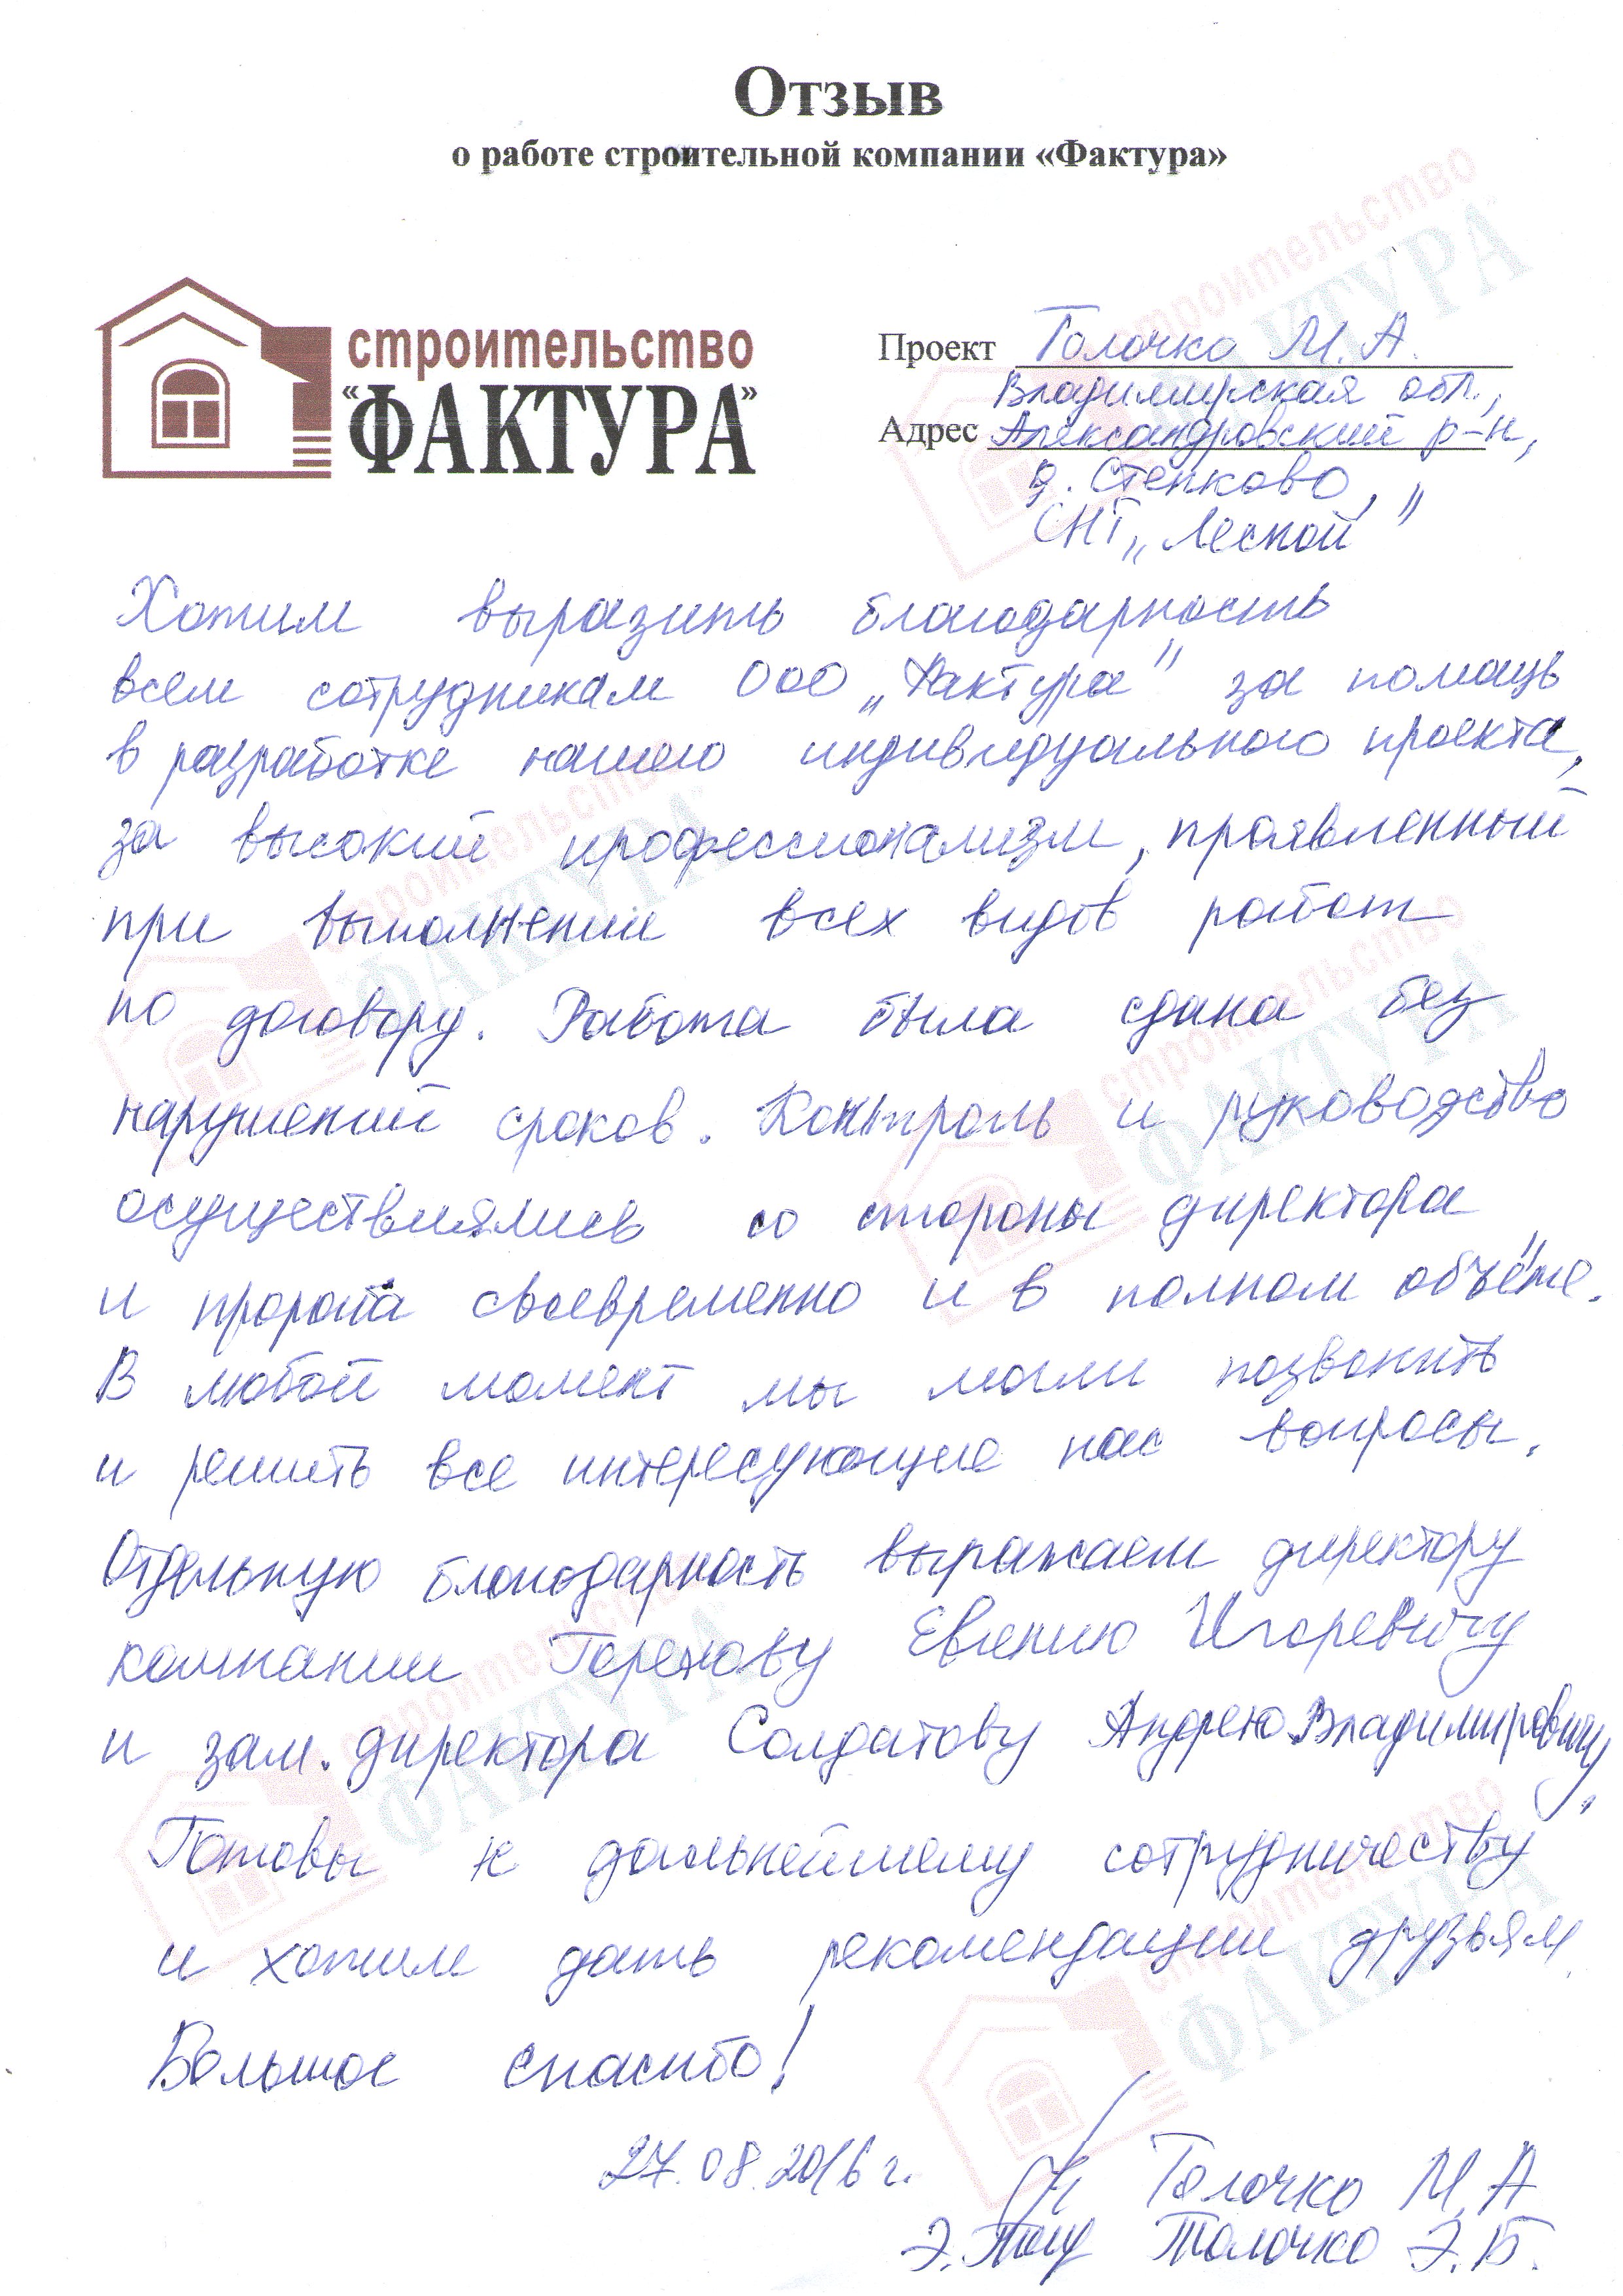 Отзыв
о работе строительной компании «Фактура»
строительство
"ФАКТУРА"
Проект Толочко М.А.
Владимирская обл.,
Адрес Александровский р-н,
д. Степково,
СНТ „Лесной"
Хотим выразить благодарность
всем сотрудникам ООО „Фактура" за помощь
в разработке нашего индивидуального проекта,
за высокий профессионализм, проявленный
при выполнении всех видов работ
по договору. Работа была сдана без
нарушений сроков. Контроль и руководство
осуществлялись со стороны директора
и прораба своевременно и в полном объёме.
В любой момент мы могли позвонить
и решить все интересующие нас вопросы.
Отдельную благодарность выражаем директору
компании Евгению Игоревичу
и зам. директора Солдатову Андрею Владимировичу.
Готовы к дальнейшему сотрудничеству
и хотим дать рекомендации друзьям.
Большое спасибо!
27.08.2016 г.
Толочко М.А
Толочко Э.Б.